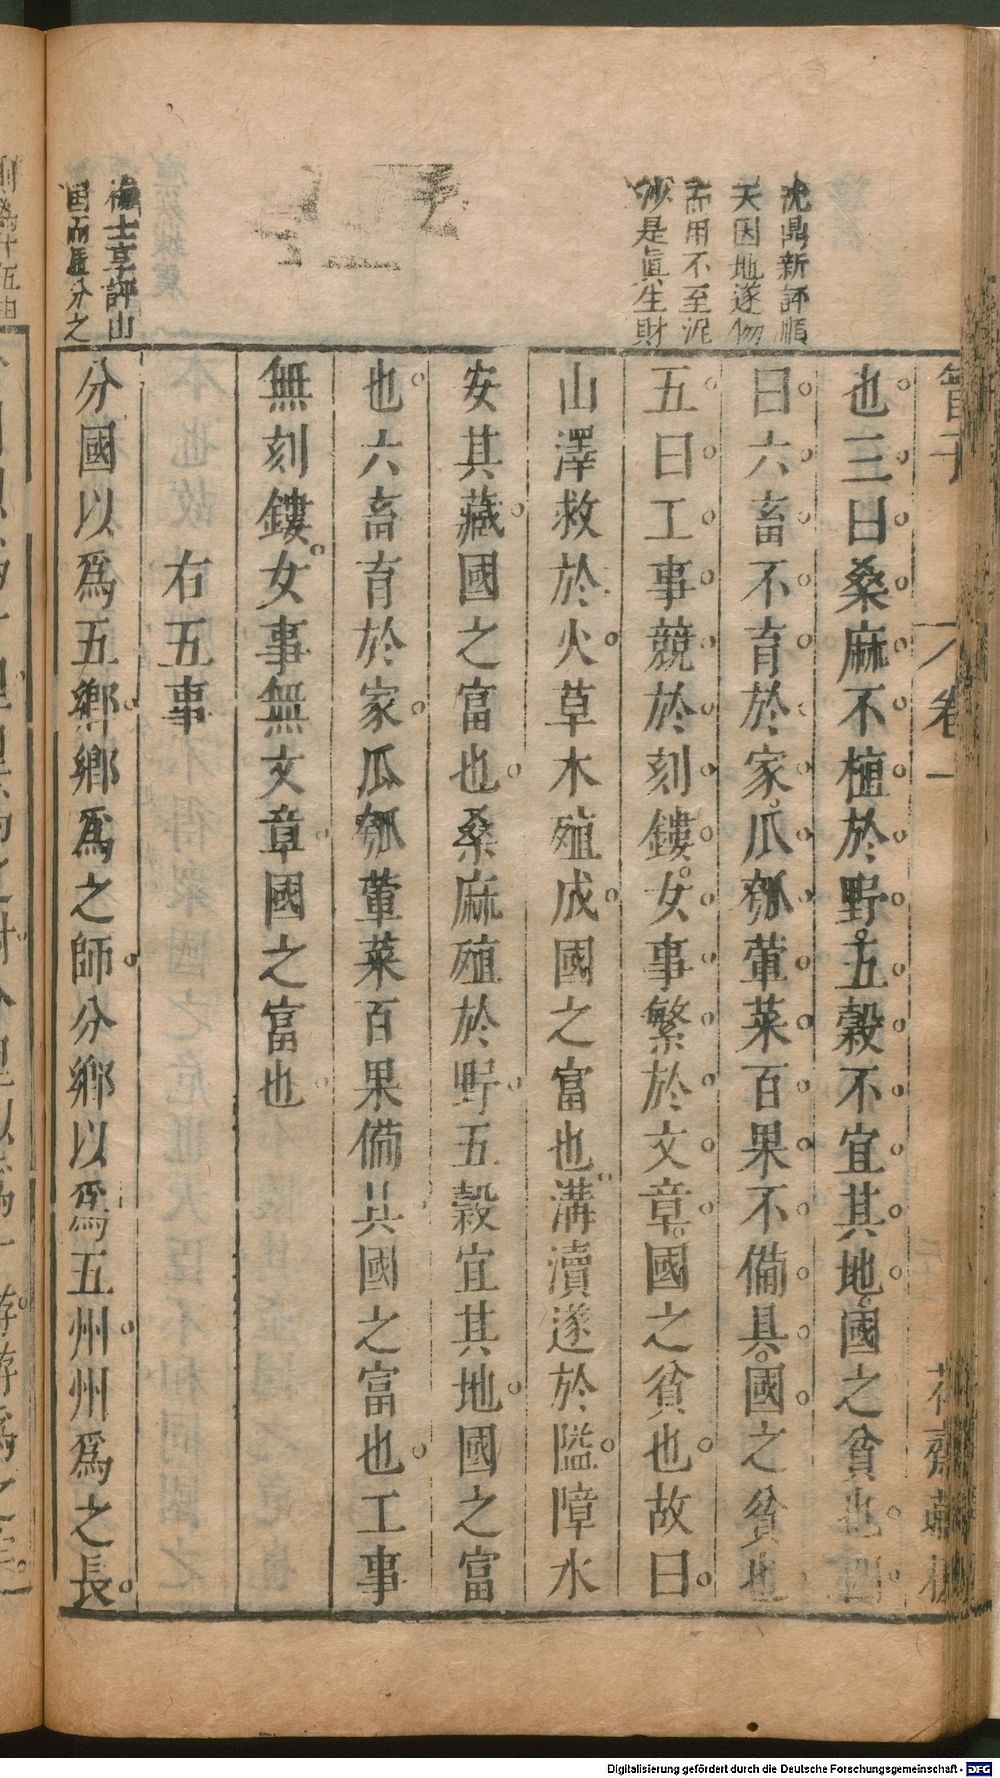 管子
卷一
花齋藏板
沈鼎新評順
天因地遂物
而用不至泥
沙是眞生財
也三曰桑麻不植於野五穀不宜其地國之貧也四
曰六畜不育於家瓜瓠葷菜百果不備具國之貧也
五曰工事競於刻鏤女事繁於文章國之貧也故曰
山澤救於火草木殖成國之富也溝瀆遂於隘障水
安其藏國之富也桑麻殖於野五穀宜其地國之富
也六畜育於家瓜瓠葷菜百果備具國之富也工事
無刻鏤女事無文章國之富也
右五事
士享評山
國而區分之
分國以爲五鄉鄉爲之師分鄉以爲五州州爲之長
Digitalisierung gefördert durch die Deutsche Forschungsgemeinschaft - DFG